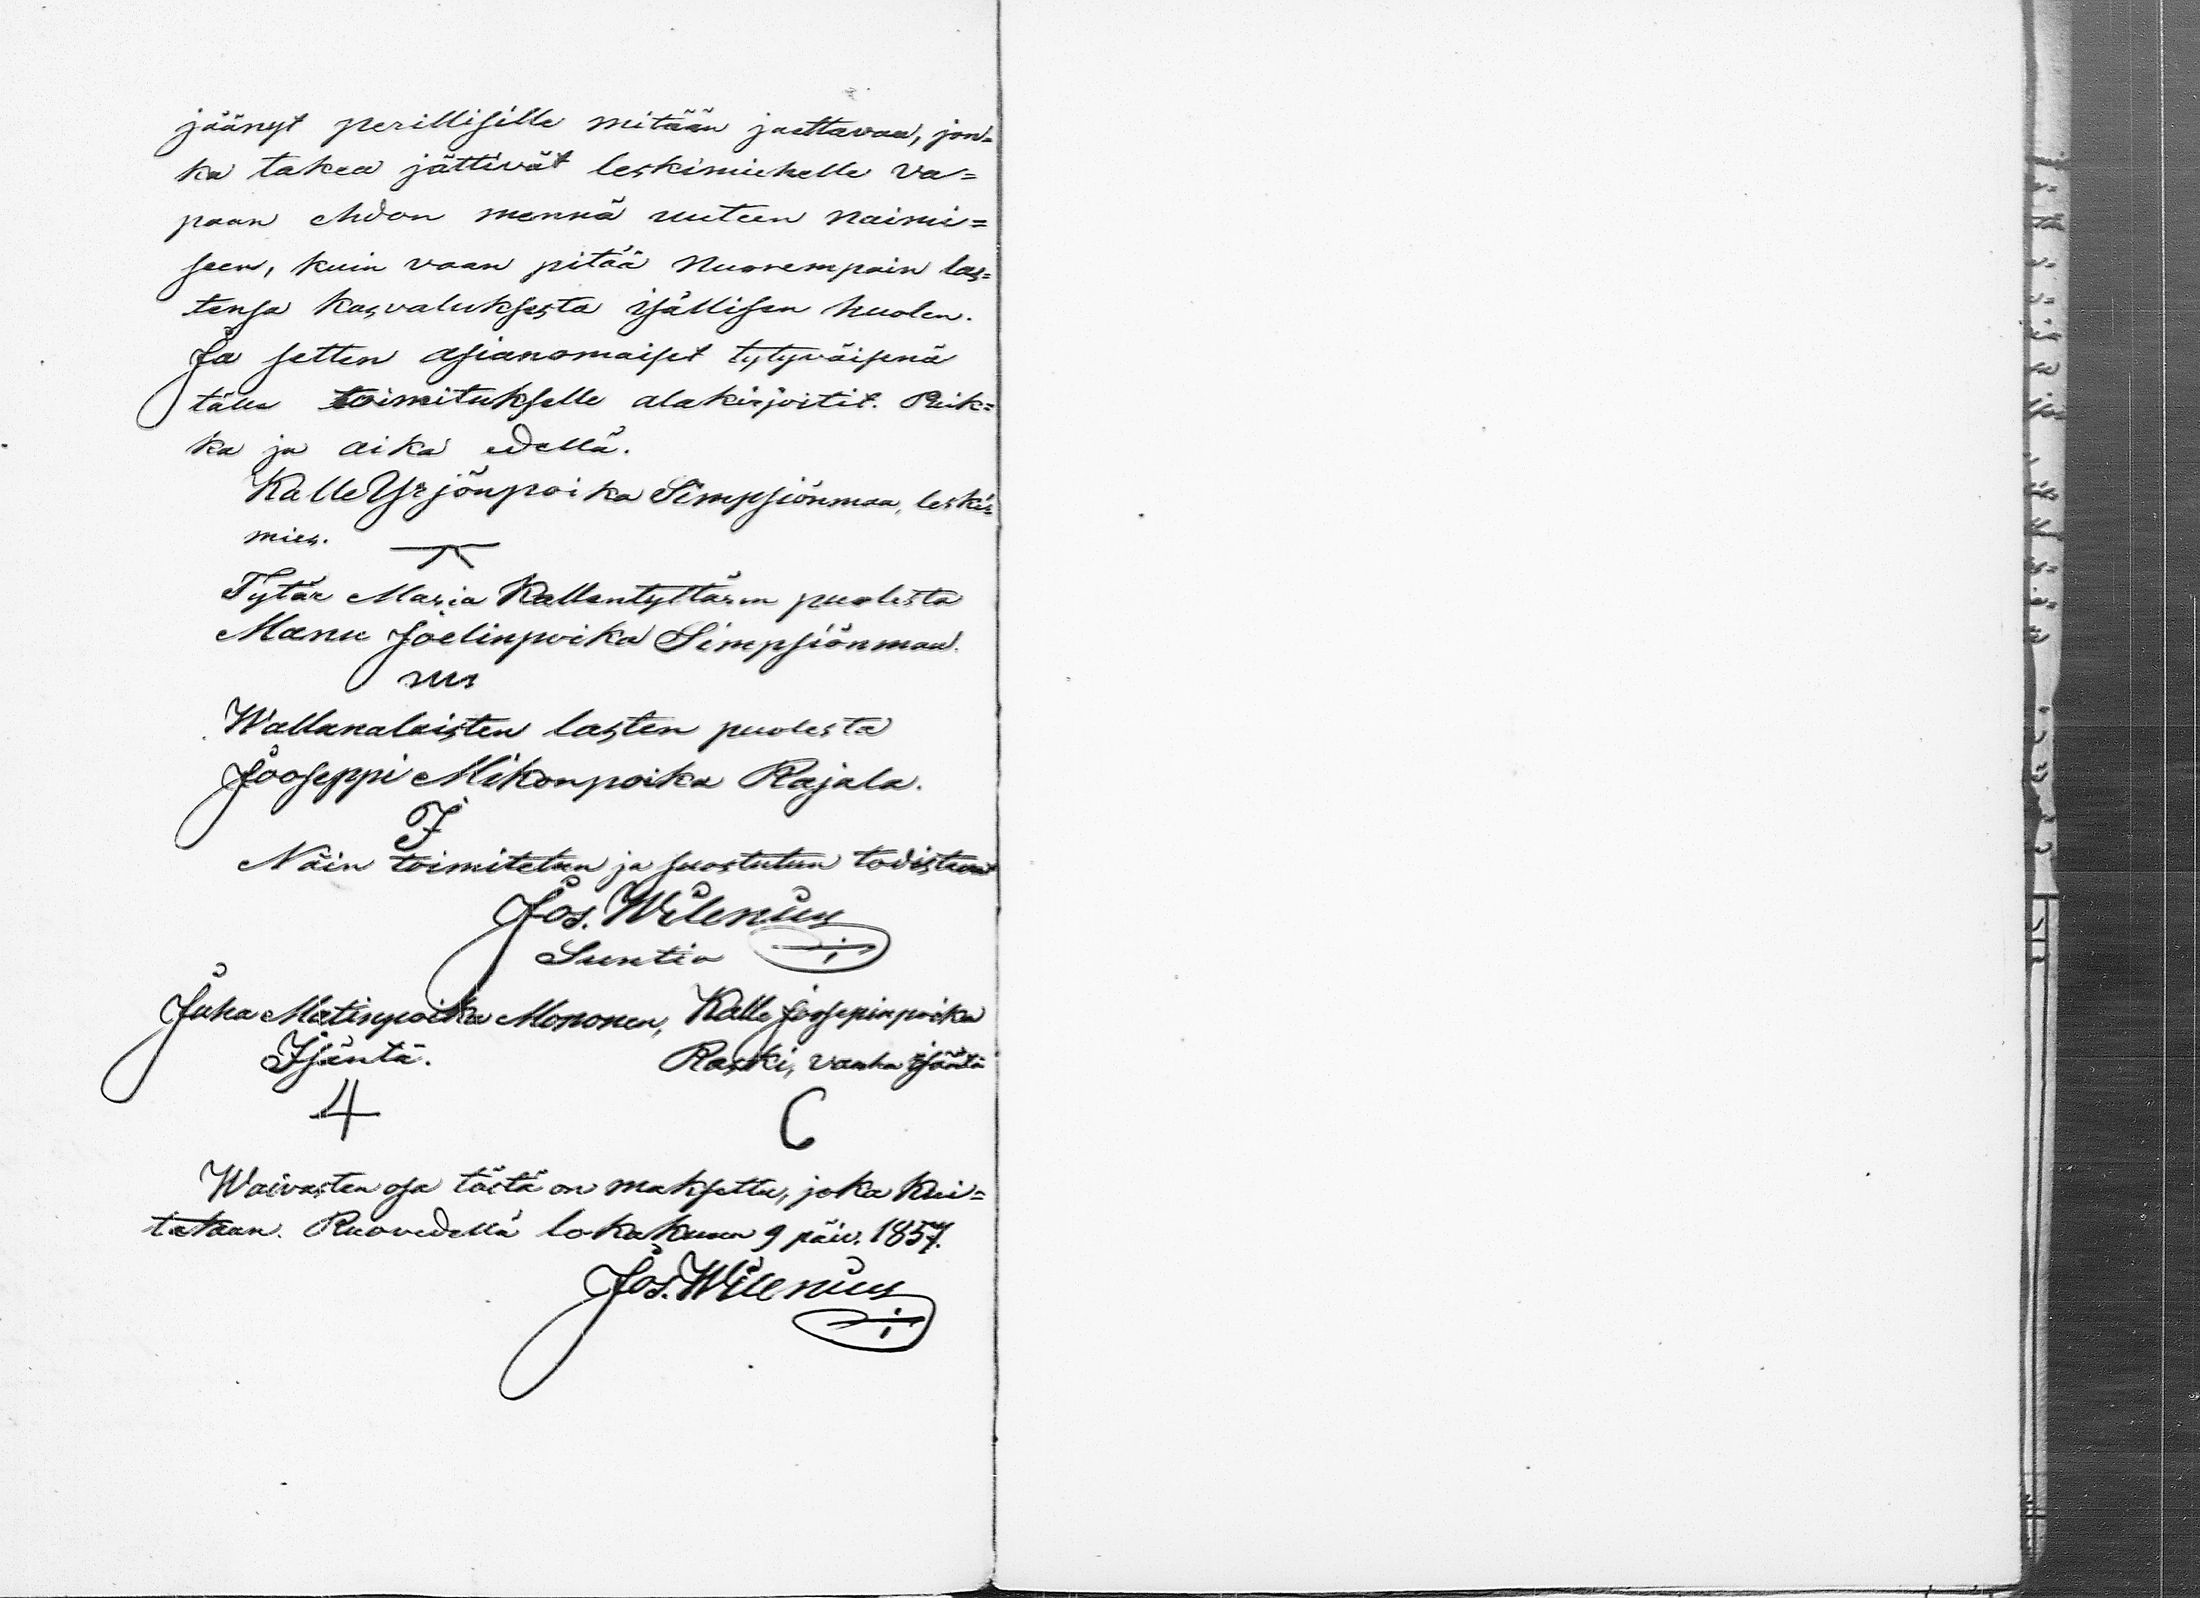 jäänyt perillisille mitään jaettavaa, jon=
ka takea jättivät leskimiehelle va=
paan ehdon mennä uuteen naimi=
seen, kuin vaan pitää nuorempain las=
tensa kasvatuksesta isällisen huolen.
Ja sitten asianomaiset tytyväisenä
tälle toimitukselle alakirjoitit. Paik=
ka ja aika edellä.
Kalle Yrjönpoika Simpsiönmaa, leski=
mies.
Tytär Maria Kallentyttären puolesta
Manu Joelinpoika Simpsiönmaa.
Wallanalaisten lasten puolesta
Jooseppi Mikonpoika Rajala.
Näin toimitetun ja suostutun todistavat
Jos. Wilenius
Suntio
Juha Matinpoika Mononen, Kalle Joosepinpoika
Isäntä. Raski, vanha isäntä
Waivasten osa tästä on maksettu, joka kui=
tataan. Ruovedellä lokakuun 9 päiv. 1857.
Jos. Wilenius